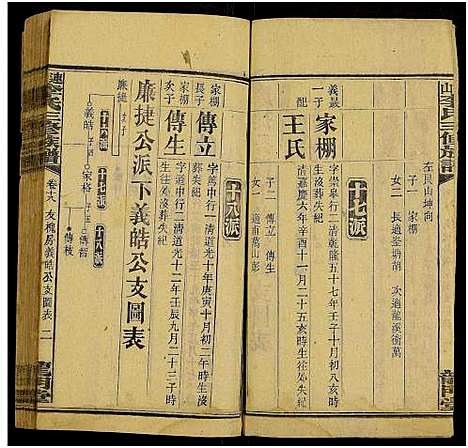 山李氏三修族譜
山坤向
女二 長適荃塘胡 次適龍溪衛萬
十七派
義最
一子
家棚
字崇泉行二清乾隆五十七年壬子十月初八亥時
生沒葬失紀
配
王氏
清嘉慶六年辛酉十一月二十五亥時生沒葬失紀
子二 傳立 傳生
女一 適南萬山彭
十八派
家棚
長子
傳立
字道中行一清道光十年庚寅十月初二寅時生沒
葬失紀
家棚
次子
傳生
字萬申行二清道光十二年壬辰九月二十三子時
生沒葬失紀
廉捷公派下義皓公支圖表
廉捷
次子
十六派
義皓
十七派
家格
十八派
傳哲
傳枝
連李氏三修族譜
卷十八 友槐房義皓公支圖表 二
龍門堂